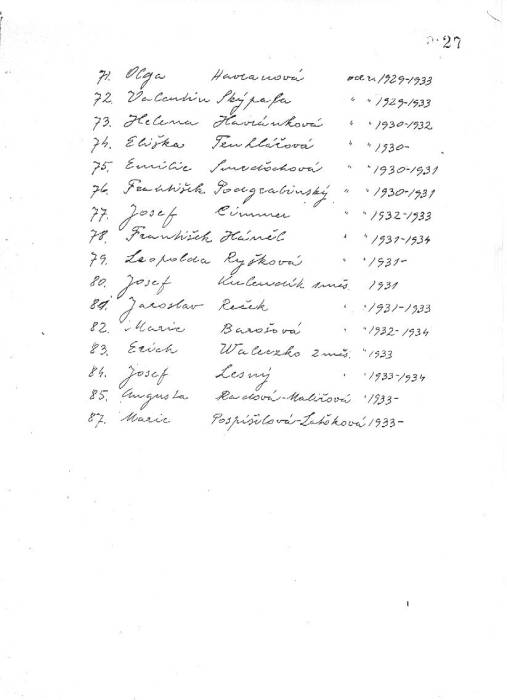 27
71. Olga Havranová od r. 1929-1933
72. Valentin Skýpala " " 1929-1933
73. Helena Havránková " " 1930-1932
74. Eliška " " 1930-
75. Emilie " " 1930-1931
76. František Podgrabinský " " 1930-1931
77. Josef Cimmer " " 1932-1933
78. František Háněl " " 1931-1934
79. Leopolda Ryšková " " 1931-
80. Josef 1931
81. Jaroslav Reček " 1931-1933
82. Marie Barošová " 1932-1934
83. Erich Waleczko 2 měs. " 1933
84. Josef Lesný " 1933-1934
85. Augusta Radová-Malířová " 1933-
87. Marie Pospíšilová-Letšková 1933-